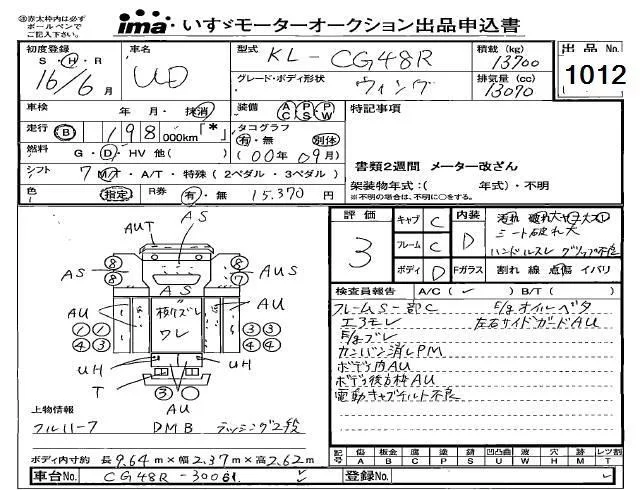 ㊟赤太枠内は必ず
ボールペンで
ご記入下さい。
ima いすゞモーターオークション出品申込書
初度登録
S・H・R
16/6月
車名
UD
型式
KL-CG48R
グレード・ボディ形状
ウィング
積載(kg)
13700
排気量(cc)
13070
出品No.
1012
車検 年 月・抹消
装備 AC PS PW
特記事項
走行 B 198 000km「*」
タコグラフ
有・無 別体
(00年09月)
燃料 G・D・HV 他( )
シフト 7 MT・A/T・特殊(2ペダル・3ペダル)
色 (指定) R券 有・無 15,370円
書類2週間 メーター改ざん
架装物年式:( 年式)・不明
※不明の場合は、不明に○をする。
評価
3
キャブ C
フレーム C
ボディ D
内装 D
汚れ 破れ大
シート破れ大
ハンドルスレ グリップ不良
Fガラス 割れ 線 点傷 イバリ
検査員報告 A/C( ✓ ) B/T( )
フレームS一部C
エアモレ
E/gブレ
カンバン消しPM
ボデー内AU
ボデー後方枠AU
電動キャブチルト不良
E/gオイルベタ
左右サイドガードAU
AUT
AS
AS
AUS
8
8
8
7
AS
AU
AU
横ズレ
ワレ
1 1
4 3
3 3
4 3
UH
UH
T
3
AU
上物情報
フルハーフ DMB ラッシング2段
ボディ内寸約 長9.64m×幅2.37m×高2.62m
記号
傷 板金 腐 塗 錆 凹凸凹 波 穴 跡 レツ割
A B C P S U W H M T
車台No. CG48R-30081
登録No.